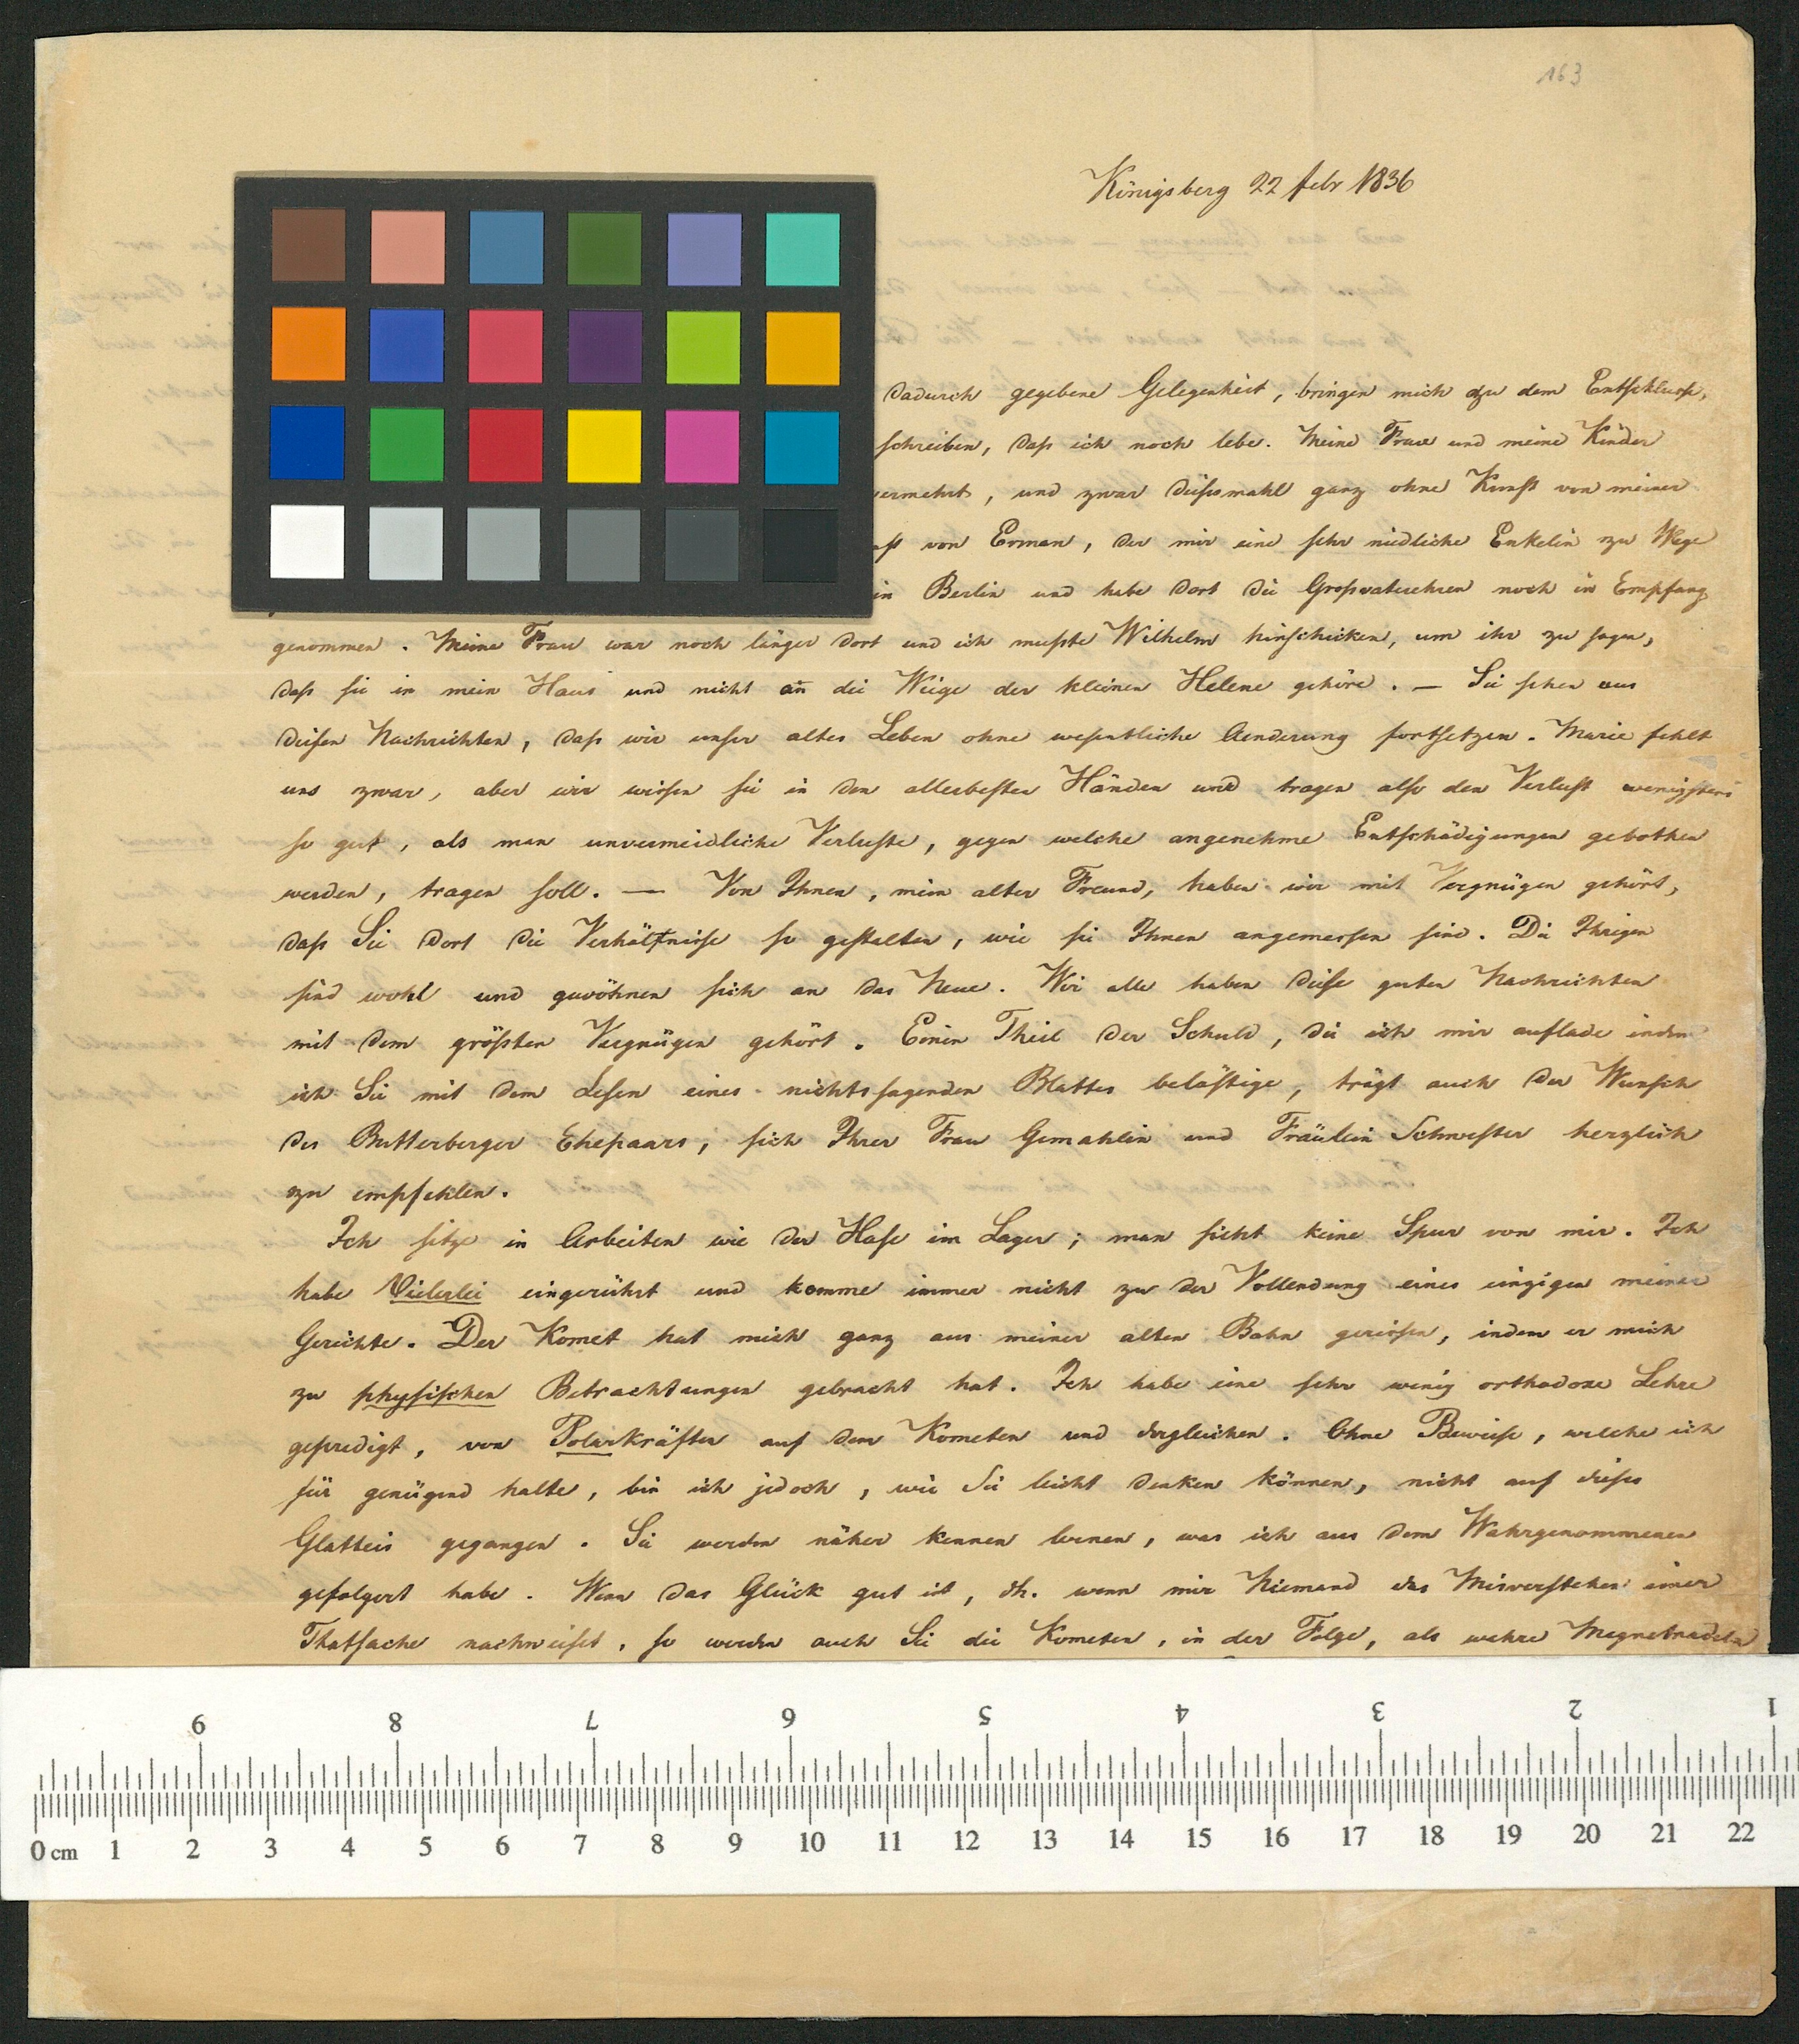 163
Königsberg 22 febr 1836
dadurch gegebene Gelegenheit, bringen mich zu dem Entschlusse,
schreiben, daß ich noch lebe. Meine Frau und meine Kinder
vermehrt, und zwar diesesmahl ganz ohne Kunst von meiner
von Erman, der mir eine sehr niedliche Enkelin zu Wege
in Berlin und habe dort die Großvaterehren noch in Empfang
genommen. Meine Frau war noch länger dort und ich mußte Wilhelm hinschicken, um ihr zu sagen,
daß sie in mein Haus und nicht an die Wiege der kleinen Helene gehöre. — Sie sehen aus
diesen Nachrichten, daß wir unser altes Leben ohne wesentliche Aenderung fortsetzen. Marie fehlt
uns zwar, aber wir wissen sie in den allerbesten Händen und tragen also den Verlust wenigstens
so gut, als man unvermeidliche Verluste, gegen welche angenehme Entschädigungen gebothen
werden, tragen soll. — Von Ihnen, mein alter Freund, haben wir mit Vergnügen gehört,
daß Sie dort die Verhältnisse so gestalten, wie sie Ihnen angemessen sind. Die Ihrigen
sind wohl und gewöhnen sich an das Neue. Wir alle haben diese guten Nachrichten
mit dem größten Vergnügen gehört. Einen Theil der Schuld, die ich mir auflade indem
ich Sie mit dem Lesen eines nichtssagenden Blattes belästige, trägt auch der Wunsch
des Butterberger Ehepaars, sich Ihrer Frau Gemahlin und Fräulein Schwester herzlich
zu empfehlen.
Ich sitze in Arbeiten wie der Hase im Lager; man sieht keine Spur von mir. Ich
habe Vielerlei eingerührt und komme immer nicht zu der Vollendung eines einzigen meiner
Gerichte. Der Komet hat mich ganz aus meiner alten Bahn gerissen, indem er mich
zu physischen Betrachtungen gebracht hat. Ich habe eine sehr wenig orthodoxe Lehre
gepredigt, von Polarkräften auf den Kometen und dergleichen. Ohne Beweise, welche ich
für genügend halte, bin ich jedoch, wie Sie leicht denken können, nicht auf dieses
Glatteis gegangen. Sie werden näher kennen lernen, was ich aus dem Wahrgenommenen
gefolgert habe. Wenn das Glück gut ist, dh. wenn mir Niemand das Misverstehen einer
Thatsache nachweiset, so werden auch Sie die Kometen, in der Folge, als wahre Magnetnadeln
9 8 7 6 5 4 3 2 1
0 cm 1 2 3 4 5 6 7 8 9 10 11 12 13 14 15 16 17 18 19 20 21 22